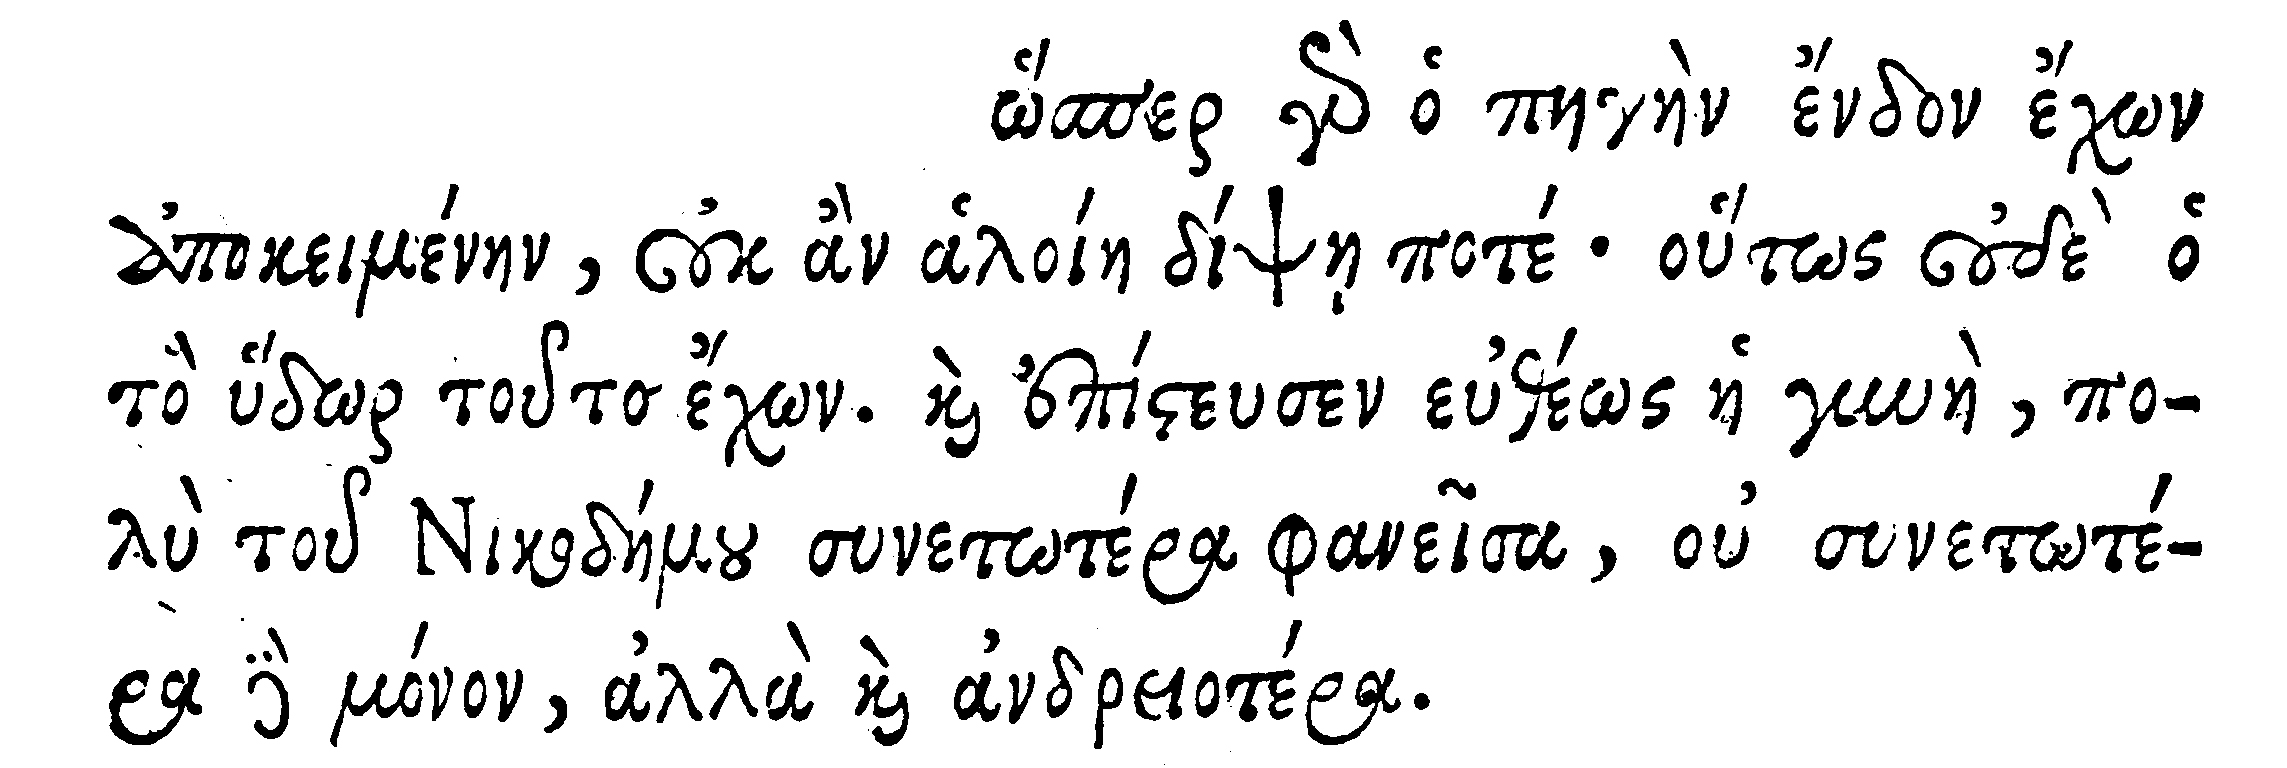 ὥσπερ γὰρ ὁ πηγὴν ἔνδον ἔχων
ἀποκειμένην, οὐκ ἂν ἁλοίη δίψῃ ποτέ· οὕτως οὐδὲ ὁ
τὸ ὕδωρ τοῦτο ἔχων. καὶ ἐπίστευσεν εὐθέως ἡ γυνὴ, πο-
λὺ τοῦ Νικοδήμου συνετωτέρα φανεῖσα, οὐ συνετωτέ-
ρα δὲ μόνον, ἀλλὰ καὶ ἀνδρειοτέρα.